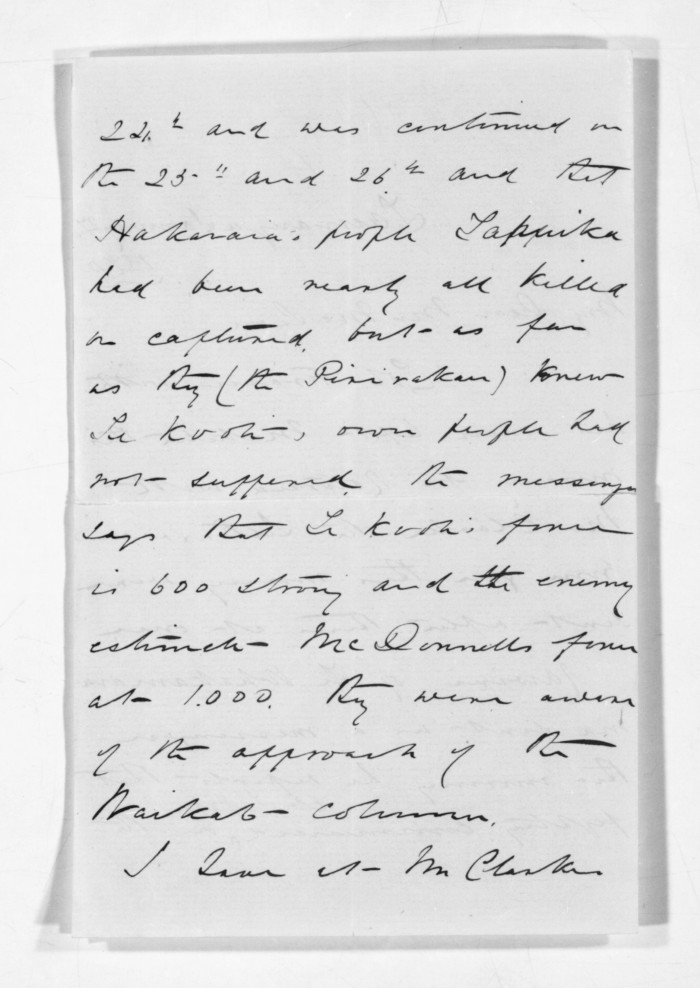 24th and was continued on
the 25th and 26th and that
Hakaraia's people Tapuika
had been nearly all killed
or captured, but as far
as they (the Pirirakau) knew
Te Kooti's own people had
not suffered, the messenger
says that Te Kooti's force
is 600 strong and the enemy
estimate McDonnells force
at 1.000. They were aware
of the approach of the
Waikato column.
I have at Mr Clarkes